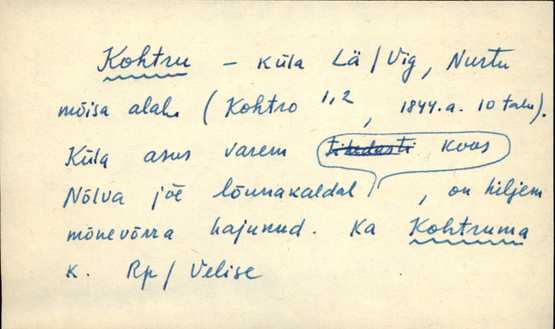 Kohtru – küla Lä/Vig, Nurtu
mõisa alal. (Kohtro 1,2, 1844.a. 10 talu).
Küla asus varem tihedasti koos
Nõlva jõe lõunakaldal, on hiljem
mõnevõrra hajunud. Ka Kohtruma
k. Rp/Velise